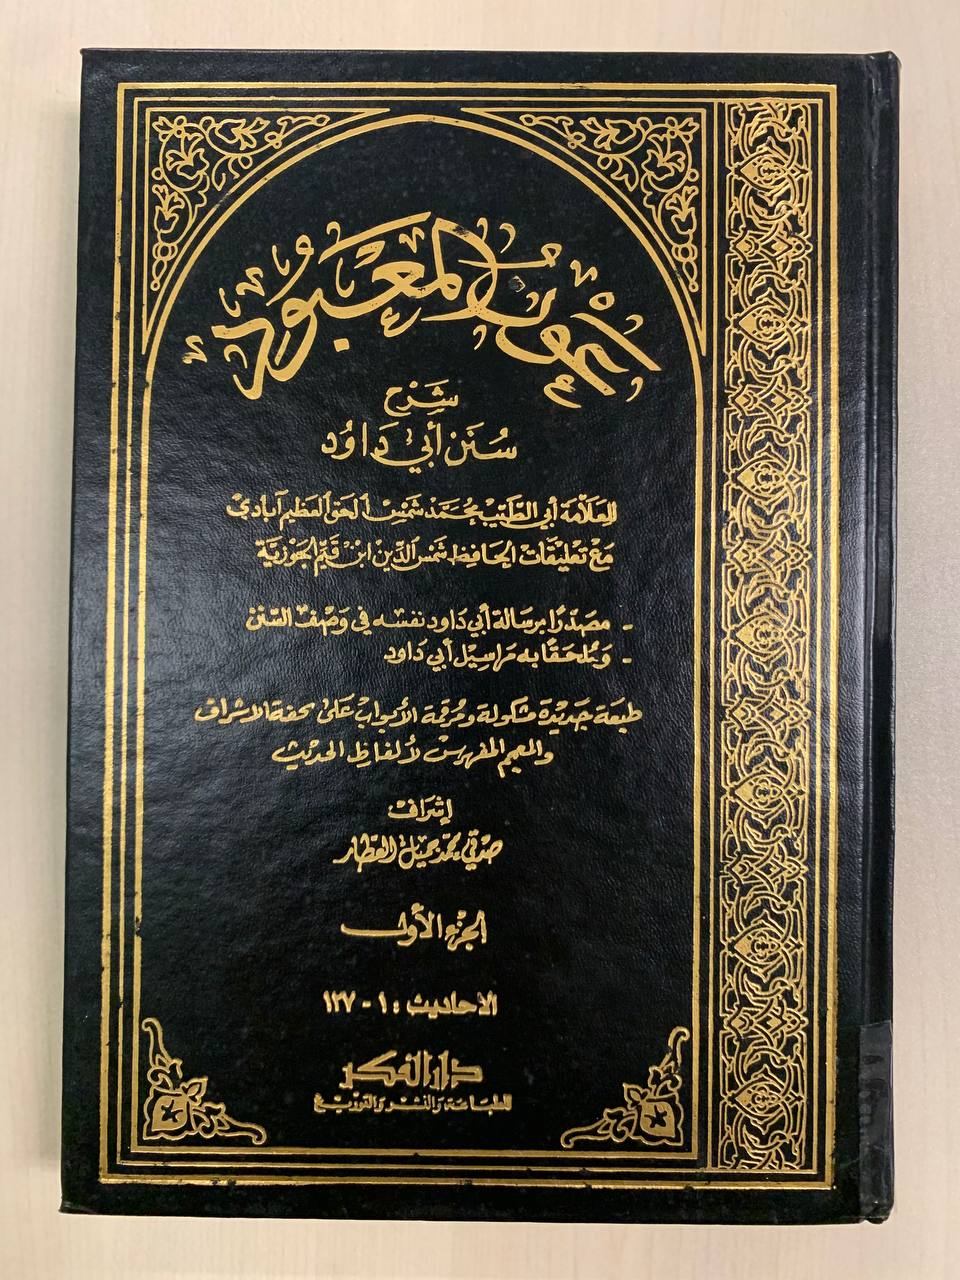 عَونُ المَعْبُود
شَرح
سُنَن أَبي دَاوُد
للعَلّامَة أبي الطَّيِّب مُحَمَّد شَمْس الحَق العَظيم آبَادي
مَعَ تَعليقَات الحَافِظ شَمْس الدِّين ابن قَيِّم الجَوزيَّة
- مصَدّرًا برسَالة أبي دَاود نفسِه في وَصْف السّنن
- وَمُلحَقًا به مَراسِيل أبي دَاود
طبعَة جَديدَة مشكولة ومُرقمة الأبواب عَلى تحفة الاشراف
والمعجم المفهرس لألفاظ الحديث
إشراف
صدقي محمد جميل العطار
الجزء الأول
الاحاديث : ١ - ١٣٧
دار الفكر
للطباعة والنشر والتوزيع